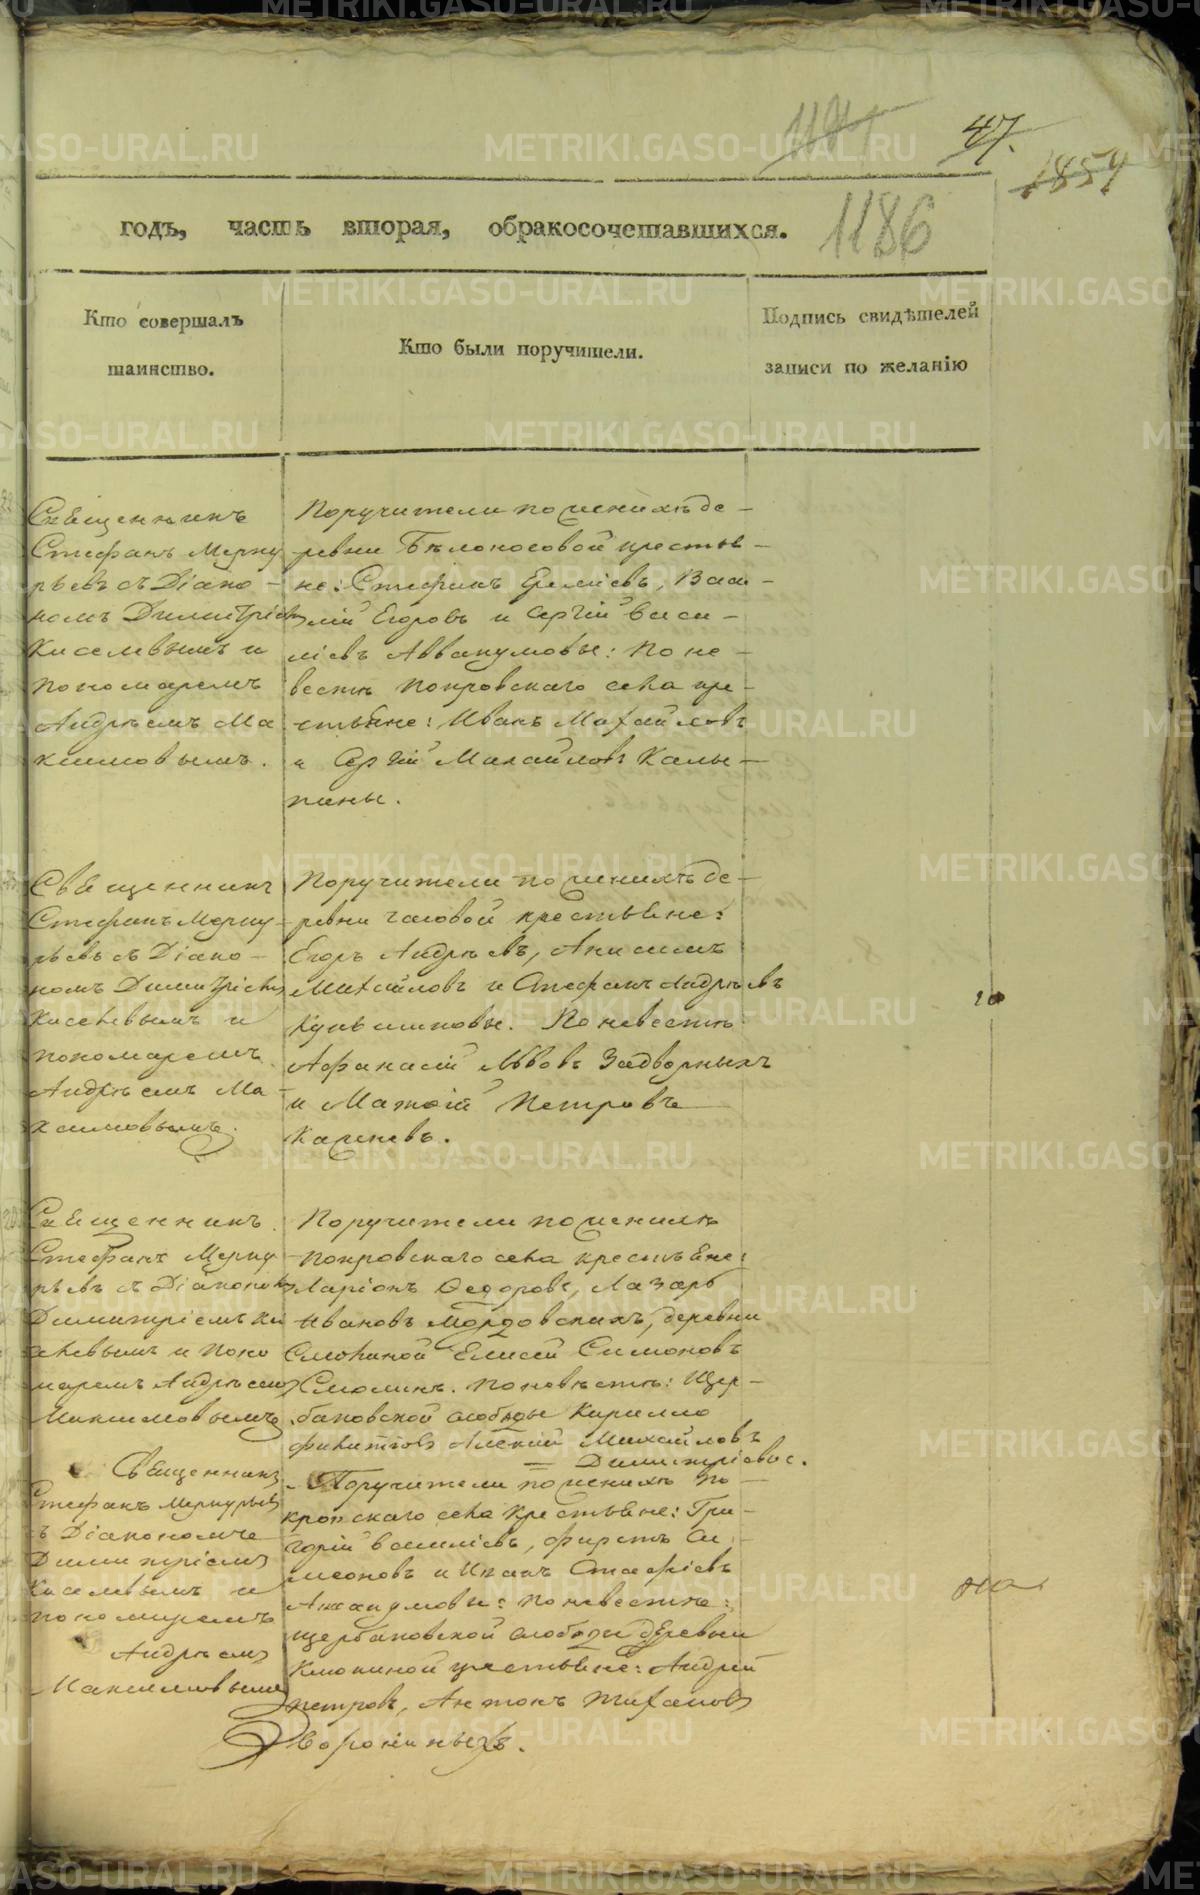 47.
1854
1186
годъ, часть вторая, обракосочетавшихся.
Кто совершалъ
таинство.
Кто были поручители.
Подпись свидѣтелей
записи по желанію
Священникъ
Стефанъ Мерку
рьевъ съ Діако-
номъ Димитріемъ
Киселевымъ и
пономаремъ
Андрѣемъ Ма
ксимовымъ.
Поручители по женихѣ де-
ревни Бѣлоносовой крестья-
не: Стефанъ Еремѣевъ, Васи-
лій Егоровъ и Сергій Васи-
ліевъ Аввакумовы: По не-
вестѣ Покровскаго села кре-
стьяне: Иванъ Михайловъ
и Сергій Михайловъ Калы-
нины.
Священникъ
Стефанъ Мерку-
рьевъ съ Діако-
номъ Димитріемъ
Киселевымъ и
пономаремъ
Андрѣемъ Ма-
ксимовымъ.
Поручители по женихѣ де-
ревни Часовой крестьяне:
Егоръ Андрѣевъ, Анисимъ
Михайловъ и Стефанъ Андрѣевъ
По невестѣ
Афанасій Львовъ Задворныхъ
и Матѳій Петровъ
Священникъ
Стефанъ Мерку
рьевъ съ Діакономъ
Димитріемъ Ки
селевымъ и Поно
маремъ Андрѣемъ
Максимовымъ
Поручители по женихѣ
Покровскаго села крестьяне:
Ларіонъ Ѳедоровъ, Лазарь
Ивановъ Мордовскихъ, деревни
Смолиной Елисей Симоновъ
Смолинъ. По невѣстѣ: Щер-
баковской слободы Кирилло
Филипповъ Алексій Михайловъ
Димитріевы.
Священникъ
Стефанъ Меркурьев
съ Діакономъ
Димитріемъ
Киселевымъ и
пономаремъ
Андрѣемъ
Максимовымъ
Поручители по женихѣ По-
кровскаго села крестьяне: Гри-
горій Василіевъ, Фирсъ Си-
меоновъ и Иванъ
Авакумовы: по невестѣ:
щербаковской слободы деревни
Клюкиной крестьяне: Андрей
Петровъ, Антонъ Тихановъ
Воронины.